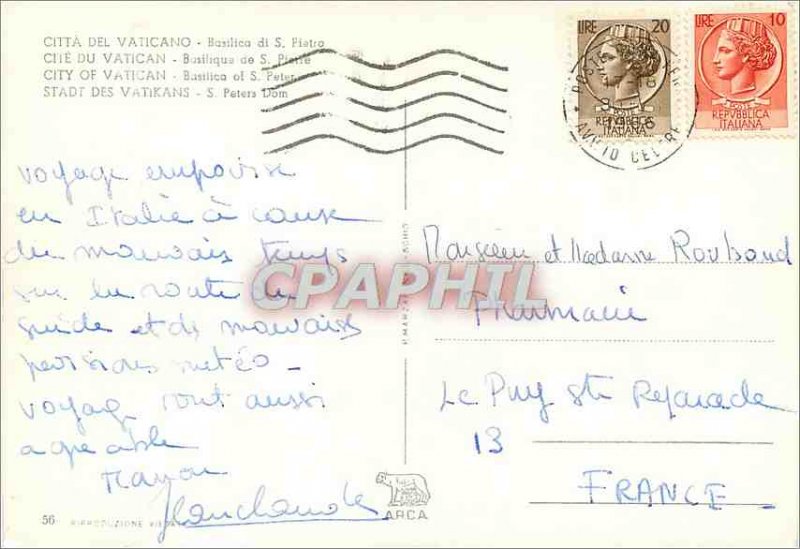 CITTÀ DEL VATICANO - Basilica di S. Pietro
CITÉ DU VATICAN - Basilique de S. Pierre
CITY OF VATICAN - Basilica of S. Peter
STADT DES VATIKANS - S. Peters Dom
LIRE 20
POSTE
REPVBBLICA
ITALIANA
LIRE 10
POSTE
REPVBBLICA
ITALIANA
voyage
en Italie à cause
du mauvais temps
sur la route du
guide et de mauvaises
météo -
voyage tout aussi
agréable
Jean Claude
Monsieur et Madame Rouboud
Pharmacie
Le Puy Ste Reparade
13
FRANCE
CPAPHIL
56
ARCA